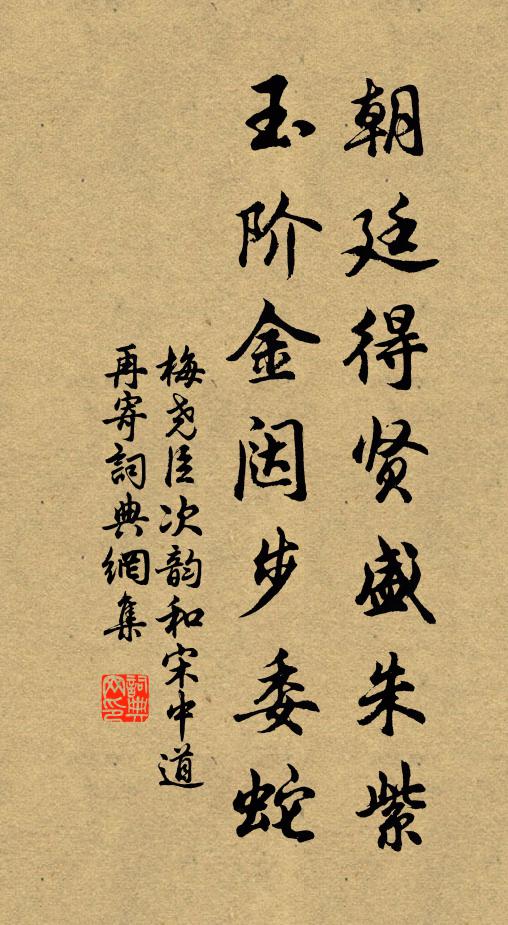 朝廷得贤盛朱紫
玉阶金阔步委蛇
梅尧臣次韵和宋中道
再寄詞典網集
詞典网印